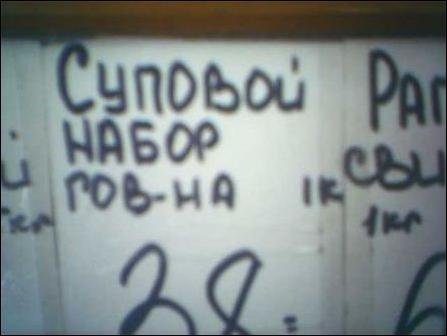 Суповой
НАБОР
ГОВ-НА 1К
38=
й
1кг
РАГ
СВИ
1кг